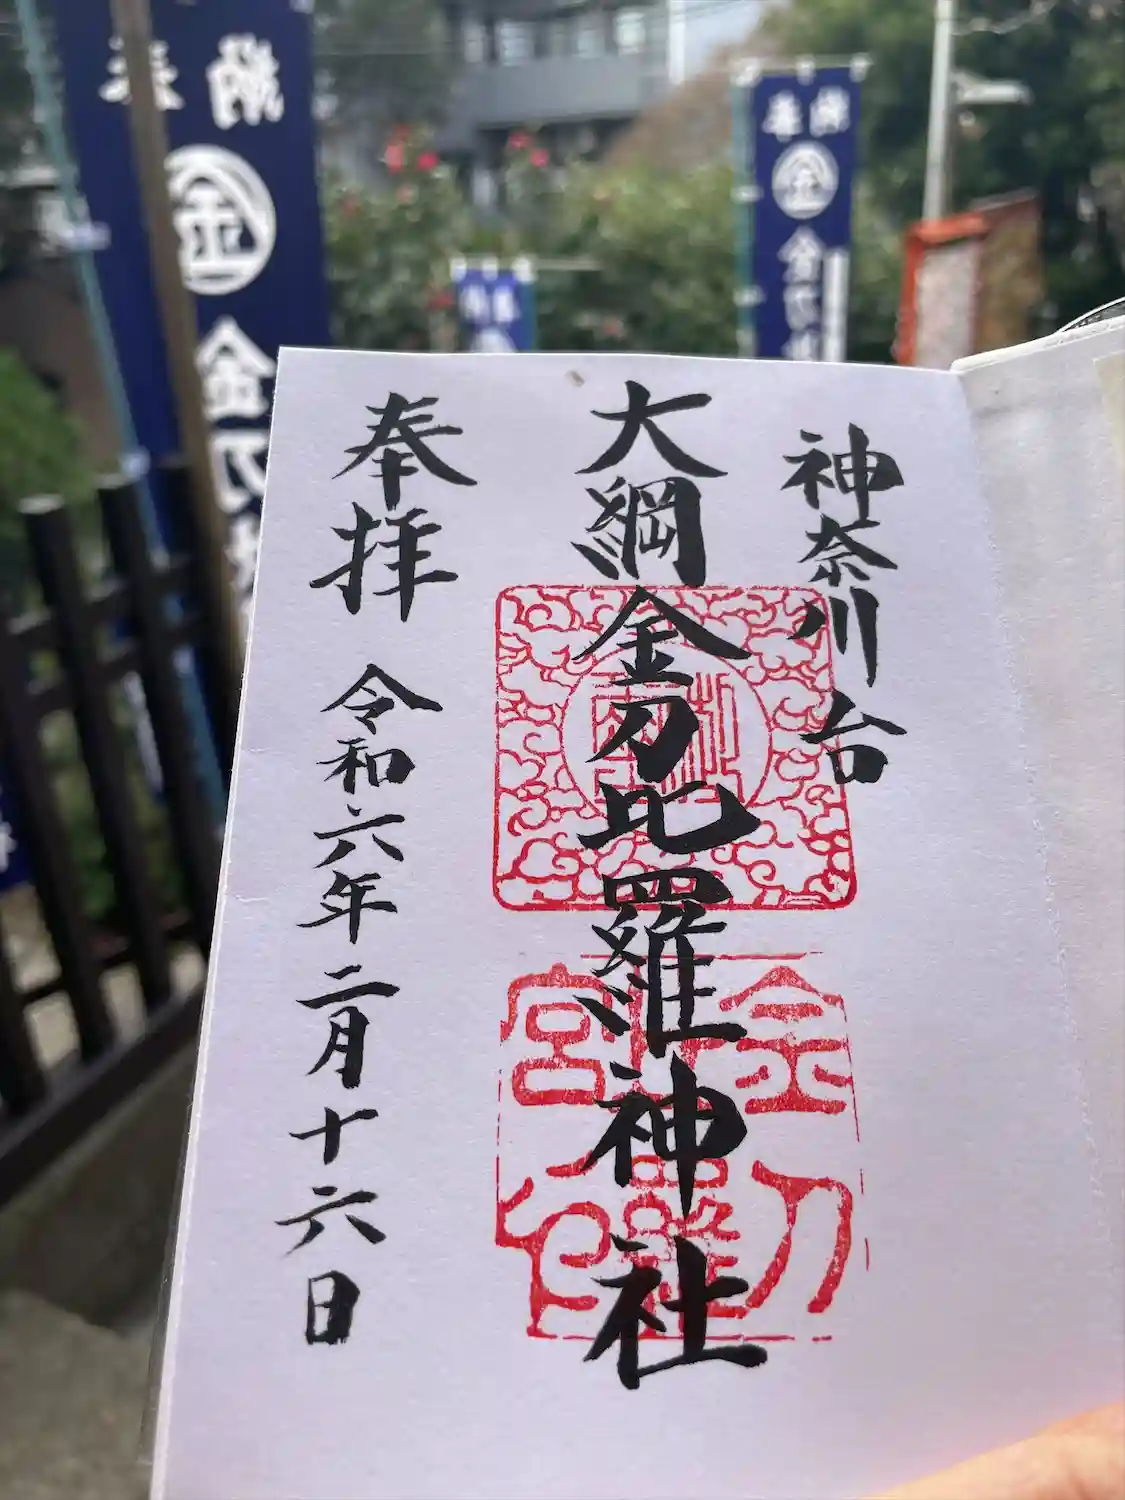 神奈川台
大綱金刀比羅神社
奉拝
令和六年二月十六日
奉納
金
金刀比
奉納
金
金刀比
奉納